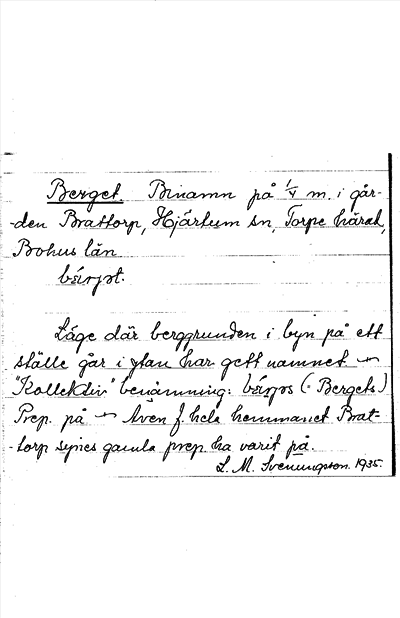 Berget. Binamn på 1/4 m. i går-
-den Brattorp, Hjärtum sn, Torpe härad,
Bohus län
Läge där berggrunden i byn på ett
ställe går i ytan har gett namnet —
"Kollektiv" benämning: (= Bergets)
Prep. på — Även f. hela hemmanet Brat-
-torp synes gamla prep. ha varit på.
L. M. Svenungsson. 1935.